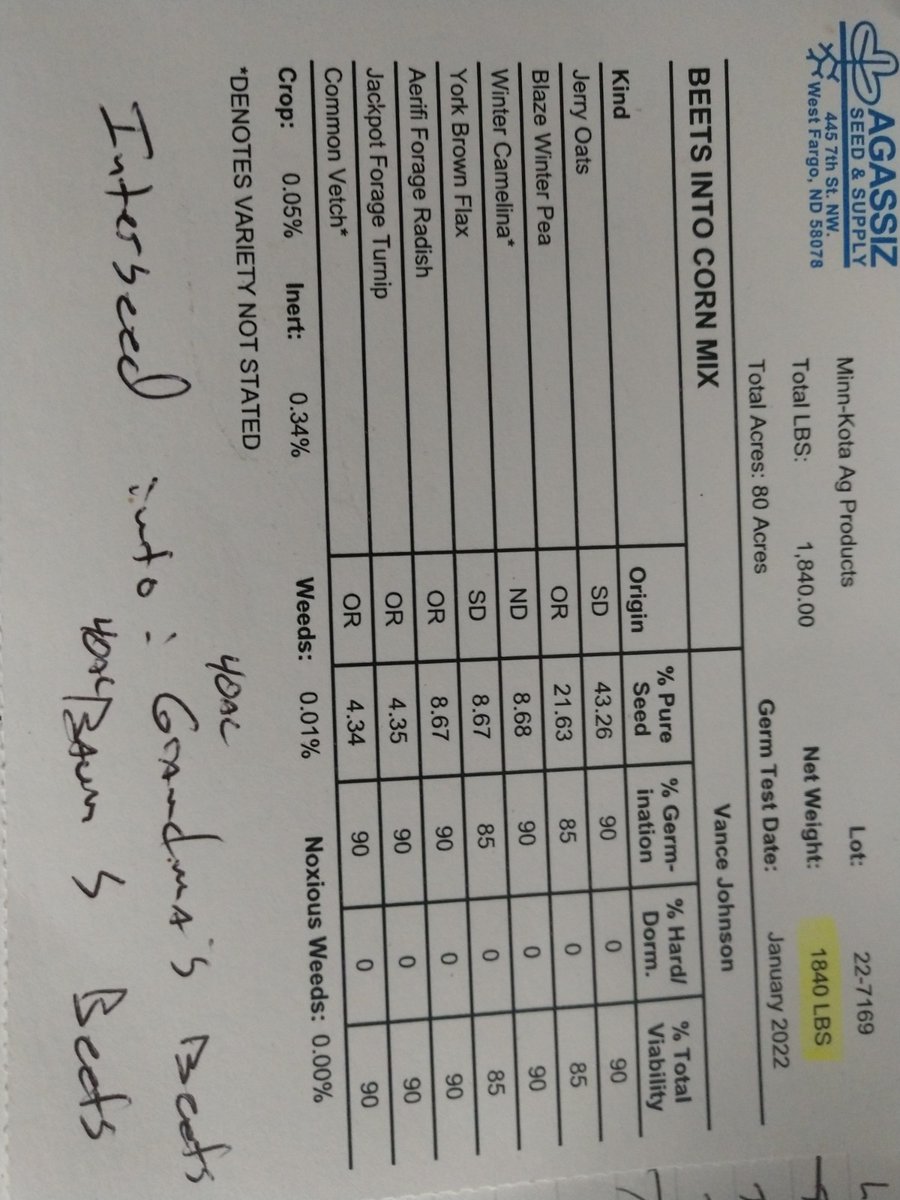 AGASSIZ
SEED & SUPPLY
445 7th St. NW.
West Fargo, ND 58078
Minn-Kota Ag Products
Lot: 22-7169
Total LBS: 1,840.00
Net Weight: 1840 LBS
Total Acres: 80 Acres
Germ Test Date: January 2022
BEETS INTO CORN MIX
Vance Johnson
Kind Origin % Pure Seed % Germ-ination % Hard/ Dorm. % Total Viability
Jerry Oats SD 43.26 90 0 90
Blaze Winter Pea OR 21.63 85 0 85
Winter Camelina* ND 8.68 90 0 90
York Brown Flax SD 8.67 85 0 85
Aerifi Forage Radish OR 8.67 90 0 90
Jackpot Forage Turnip OR 4.35 90 0 90
Common Vetch* OR 4.34 90 0 90
Crop: 0.05% Inert: 0.34% Weeds: 0.01% Noxious Weeds: 0.00%
*DENOTES VARIETY NOT STATED
40AC
Interseed into: Grandma's Beets
40AC Beets